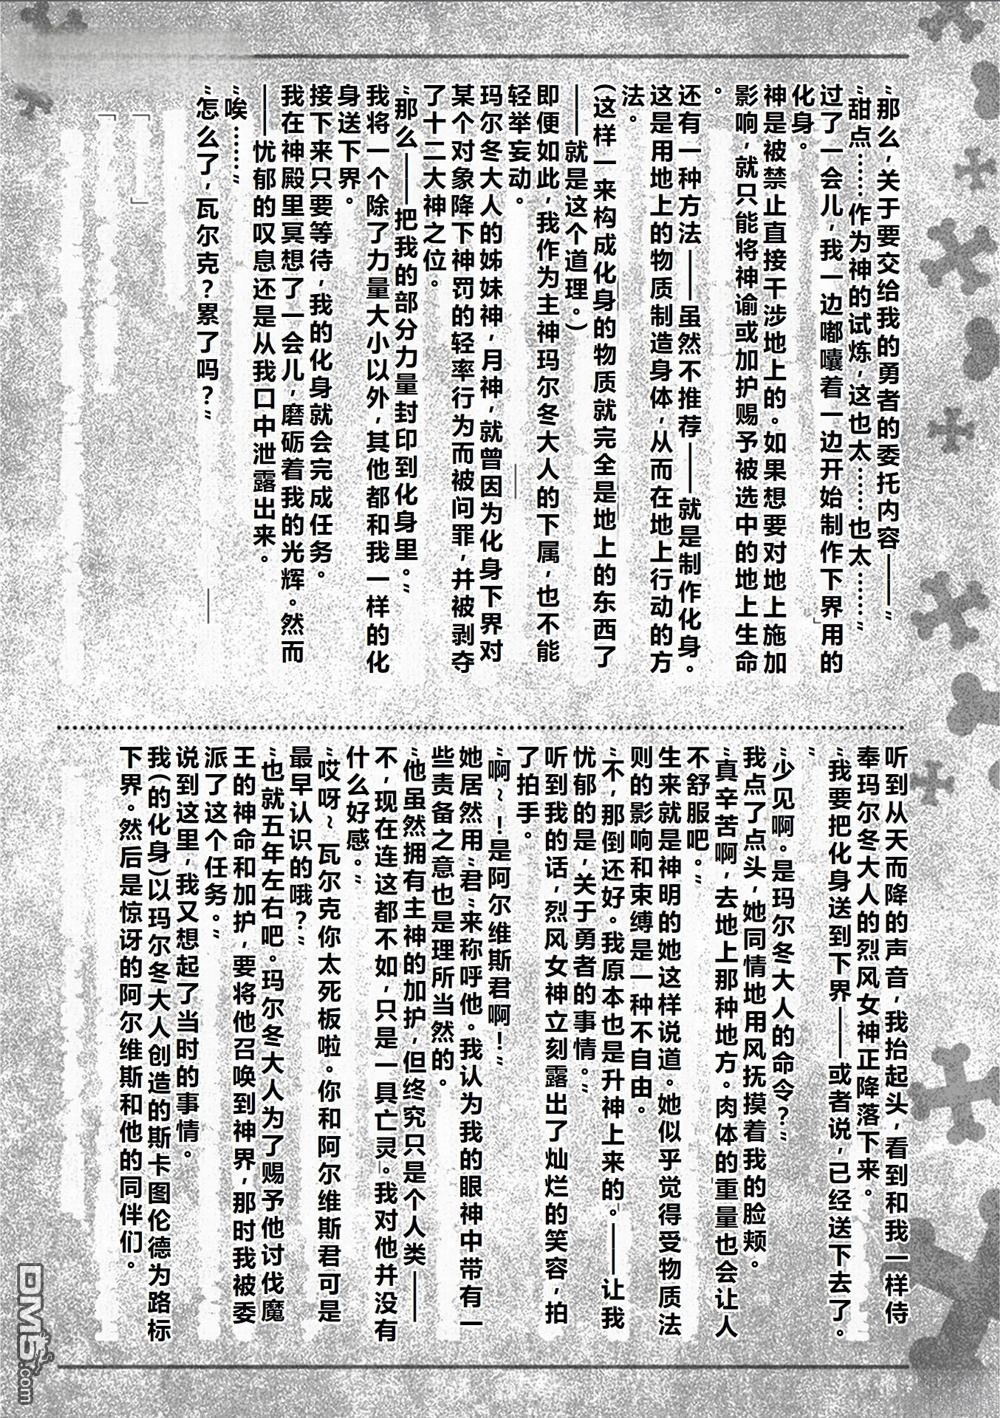 “那么,关于要交给我的勇者的委托内容——”
“甜点……作为神的试炼,这也太……也太……”
过了一会儿,我一边嘟囔着一边开始制作下界用的
化身。
神是被禁止直接干涉地上的。如果想要对地上施加
影响,就只能将神谕或加护赐予被选中的地上生命
。
还有一种方法——虽然不推荐——就是制作化身。
这是用地上的物质制造身体,从而在地上行动的方
法。
(这样一来构成化身的物质就完全是地上的东西了
——就是这个道理。)
即便如此,我作为主神玛尔冬大人的下属,也不能
轻举妄动。
玛尔冬大人的姊妹神,月神,就曾因为化身下界对
某个对象降下神罚的轻率行为而被问罪,并被剥夺
了十二大神之位。
“那么——把我的部分力量封印到化身里。”
我将一个除了力量大小以外,其他都和我一样的化
身送下界。
接下来只要等待,我的化身就会完成任务。
我在神殿里冥想了一会儿,磨砺着我的光辉。然而
——忧郁的叹息还是从我口中泄露出来。
“唉……”
“怎么了,瓦尔克?累了吗?”
听到从天而降的声音,我抬起头,看到和我一样侍
奉玛尔冬大人的烈风女神正降落下来。
“我要把化身送到下界——或者说,已经送下去了。
”
“少见啊。是玛尔冬大人的命令?”
我点了点头,她同情地用风抚摸着我的脸颊。
“真辛苦啊,去地上那种地方。肉体的重量也会让人
不舒服吧。”
生来就是神明的她这样说道。她似乎觉得受物质法
则的影响和束缚是一种不自由。
“不,那倒还好。我原本也是升神上来的。——让我
忧郁的是,关于勇者的事情。”
听到我的话,烈风女神立刻露出了灿烂的笑容,拍
了拍手。
“啊~!是阿尔维斯君啊!”
她居然用“君”来称呼他。我认为我的眼神中带有一
些责备之意也是理所当然的。
“他虽然拥有主神的加护,但终究只是个人类——
不,现在连这都不如,只是一具亡灵。我对他并没有
什么好感。”
“哎呀~瓦尔克你太死板啦。你和阿尔维斯君可是
最早认识的哦?”
“也就五年左右吧。玛尔冬大人为了赐予他讨伐魔
王的神命和加护,要将他召唤到神界,那时我被委
派了这个任务。”
说到这里,我又想起了当时的事情。
我(的化身)以玛尔冬大人创造的斯卡图伦德为路标
下界。然后是惊讶的阿尔维斯和他的同伴们。
DM5.com